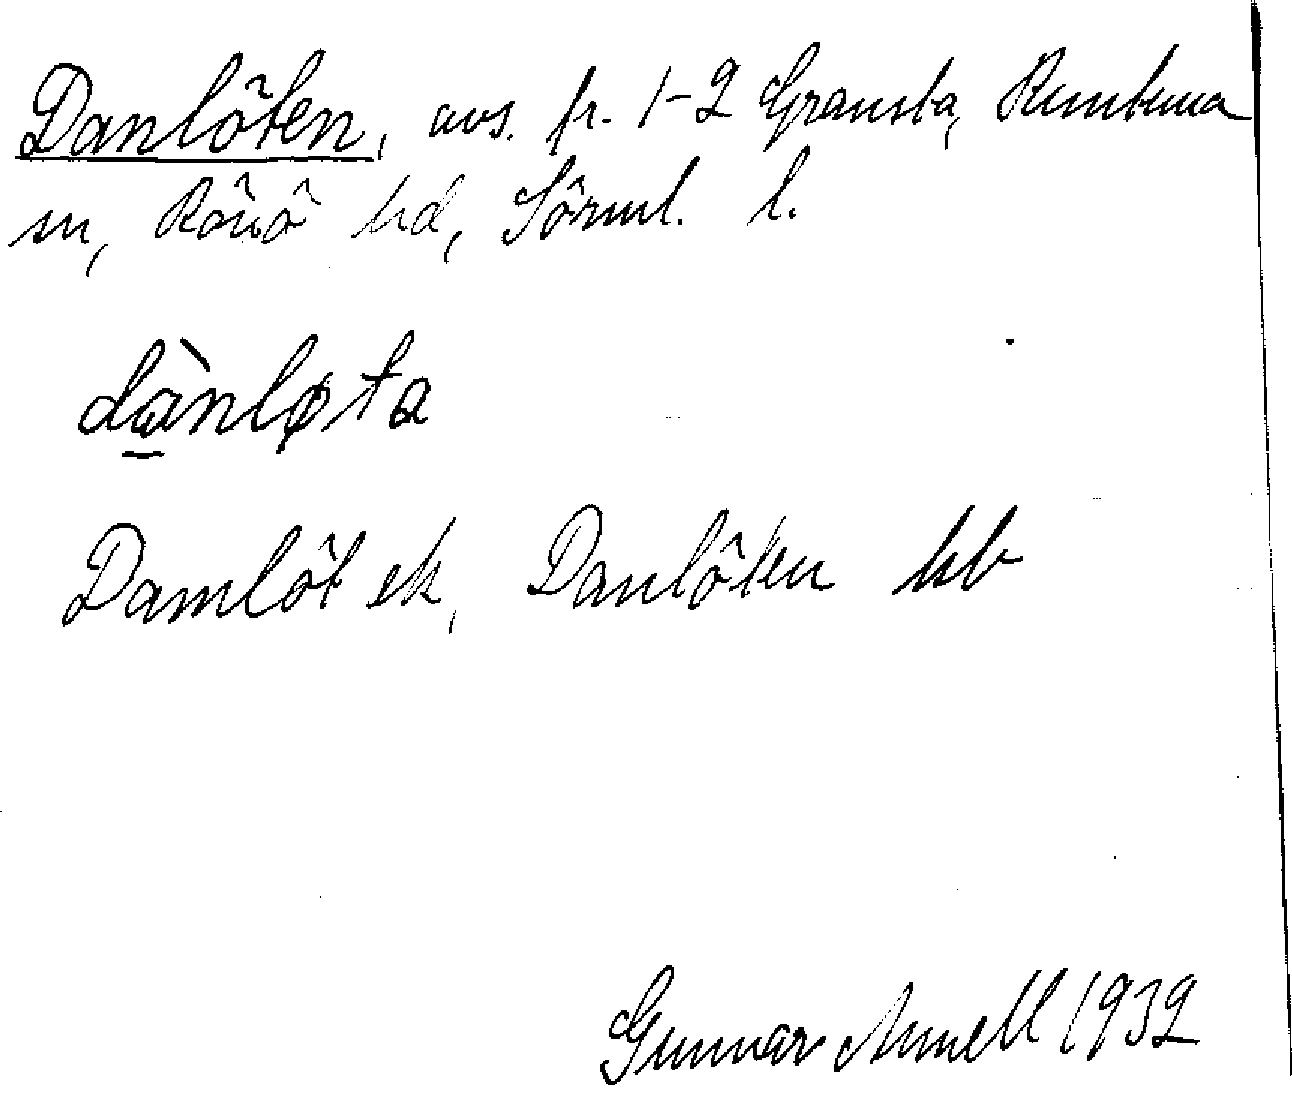 Danlöten, avs. fr. 1-2 Gransta, Runtuna
sn, Rönö hd, Sörml. l.
dànløta
Damlöt ek, Danlöten kb
Gunnar Annell 1932